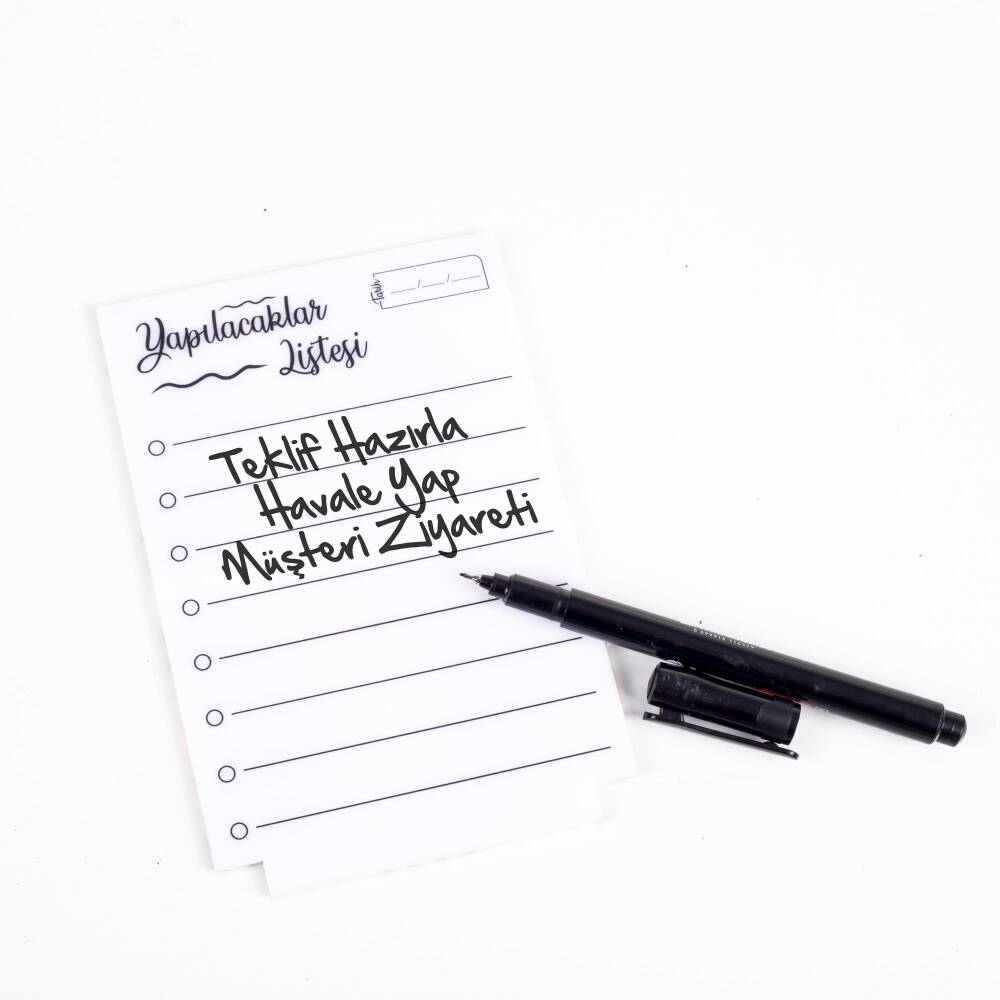 Yapılacaklar
Listesi
Tarih __/__/__
Teklif Hazırla
Havale Yap
Müşteri Ziyareti